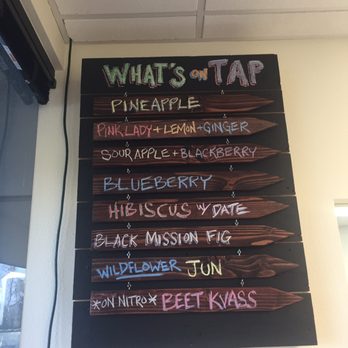 WHAT'S ON TAP
PINEAPPLE
PINK LADY + LEMON + GINGER
SOUR APPLE + BLACKBERRY
BLUEBERRY
HIBISCUS W/ DATE
BLACK MISSION FIG
WILDFLOWER JUN
*ON NITRO* BEET KVASS